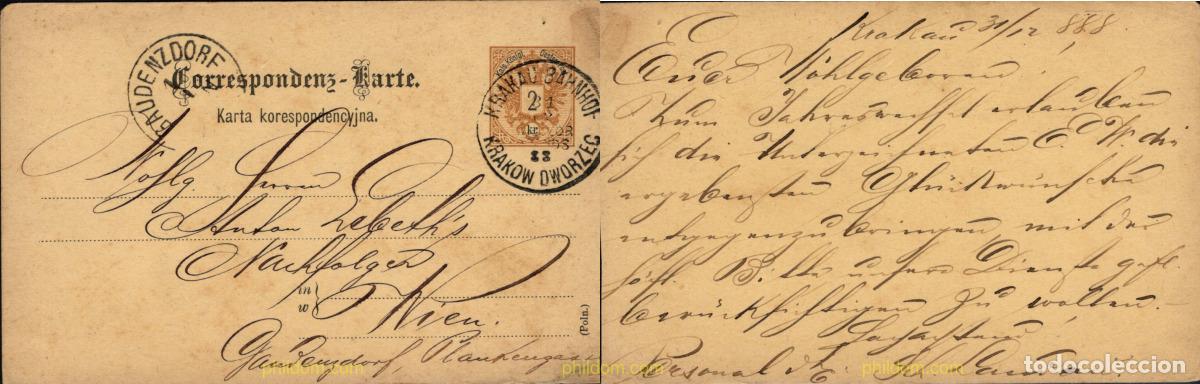 GAUDENZDORF
Correspondenz-Karte.
Karta korespondencyjna.
KRAKAU BAHNHOF
2 kr
88
KRAKÓW DWORZEC
Wohlg. Herren
Anton Zebeth's
Nachfolger
in
w
Wien.
Gaudenzdorf,
(Poln.)
phildom.com
Krakau 31/12 888
Euer Wohlgeboren
Zum Jahreswechsel erlauben
sich die Unterzeichneten E. W. die
ergebensten Glückwünsche
entgegenzubringen, mit der
höfl. Bitte unsere Dienste gefl.
berücksichtigen zu wollen.
Hochachtend
Personal d.
phildom.com
todocoleccion